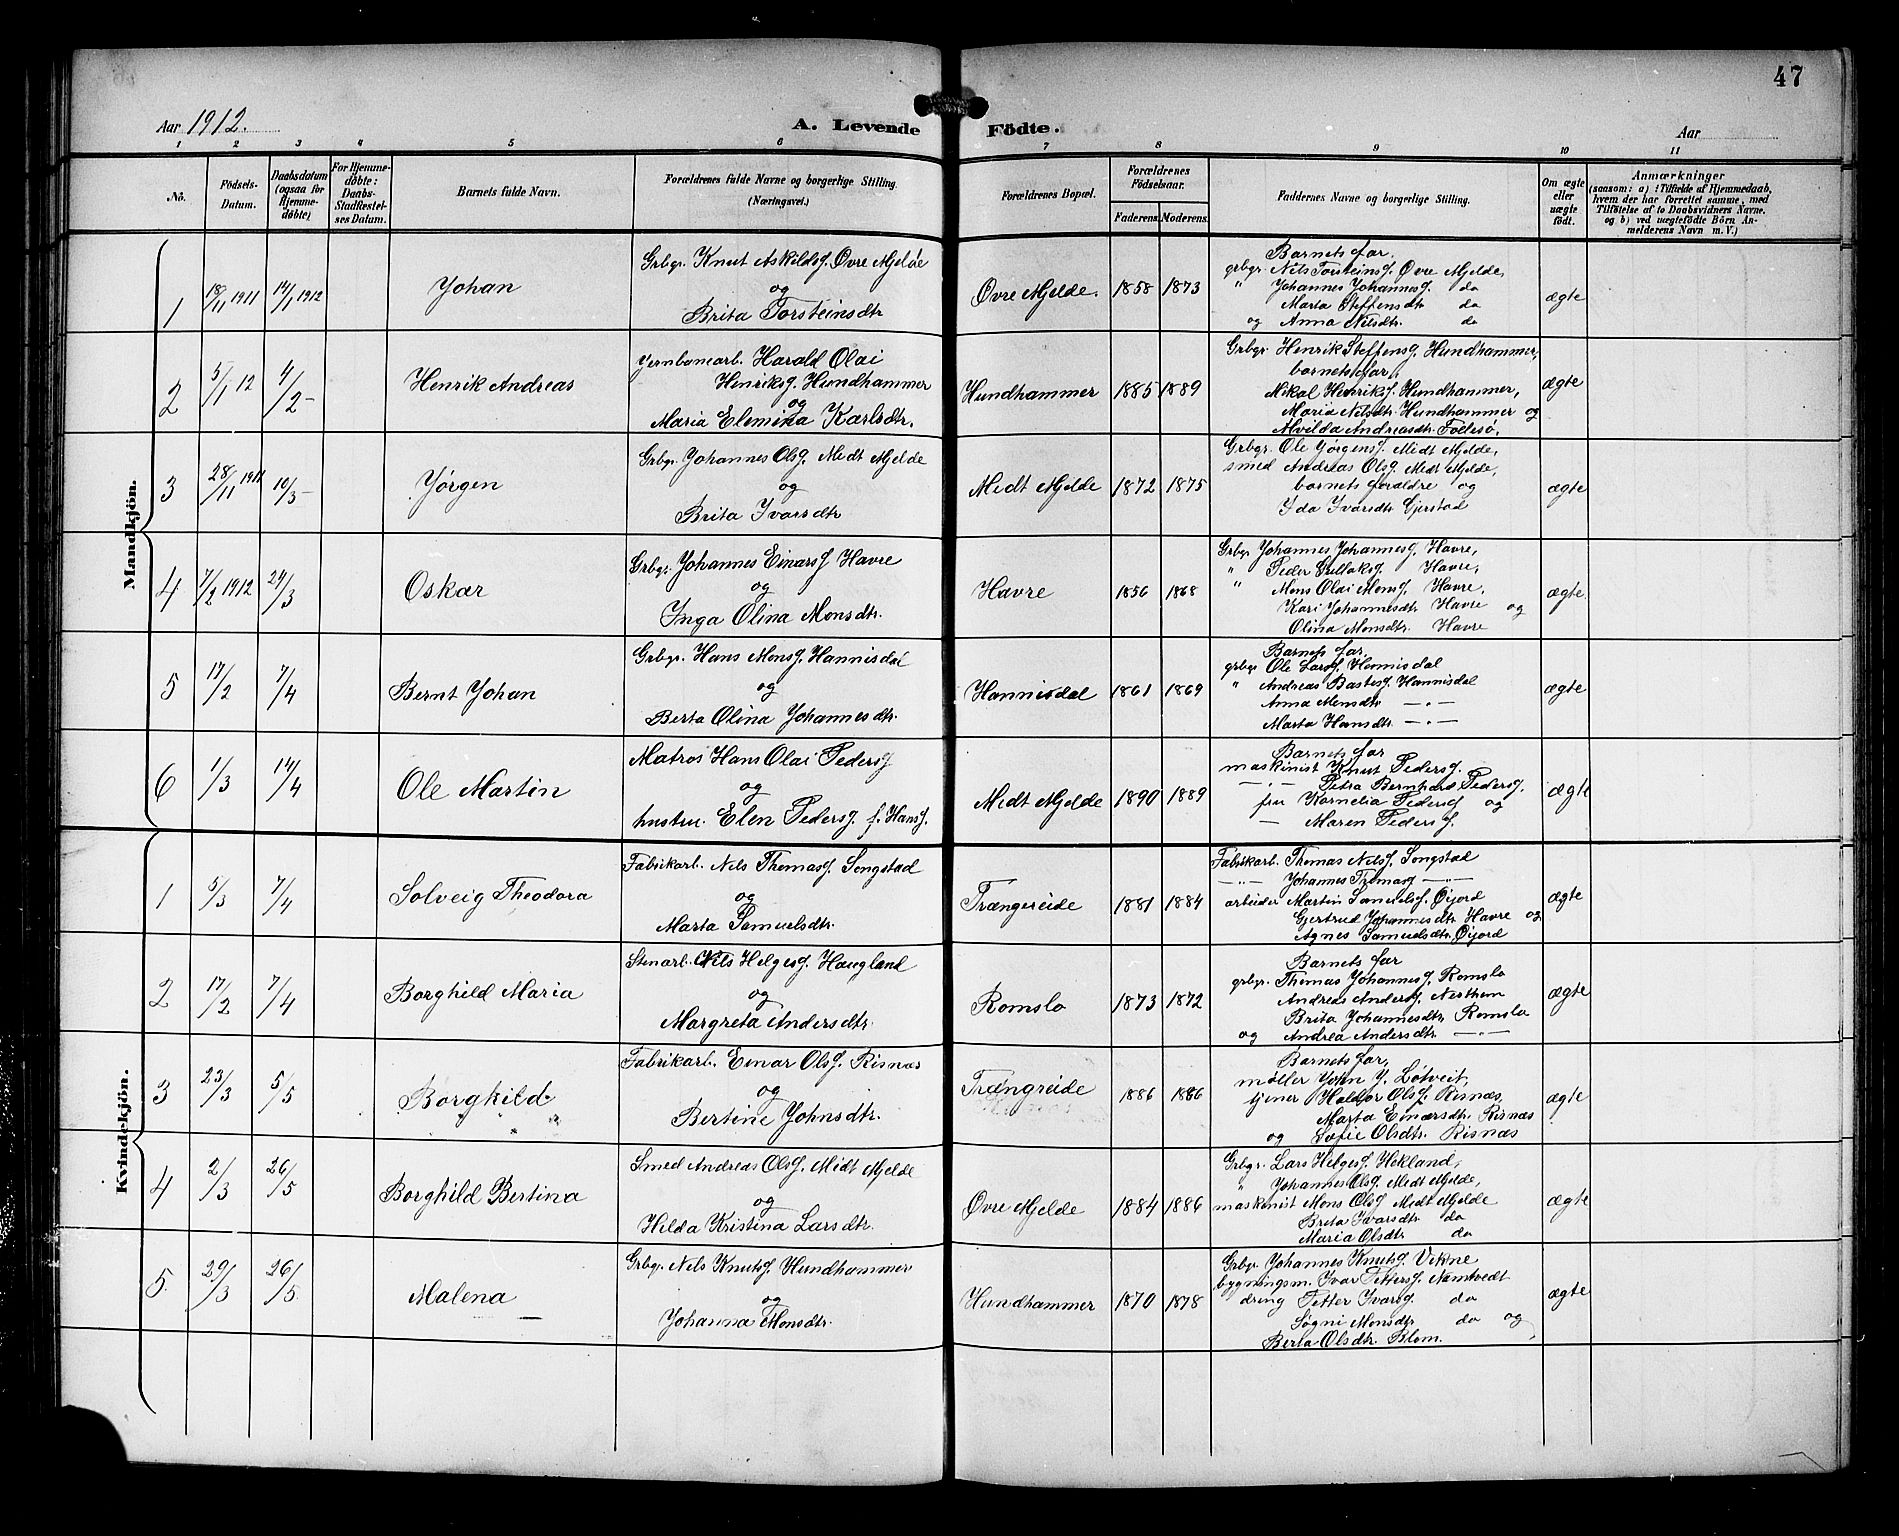 47
Aar 1912.
A. Levende Födte.
Aar
1 2 3 4 5 6 7 8 9 10 11
No.
Födsels-Datum.
Daabsdatum (ogsaa for Hjemmedöbte)
For Hjemmedöbte: Daabs-Stadfæstelses Datum.
Barnets fulde Navn.
Forældrenes fulde Navne og borgerlige Stilling. (Næringsvei.)
Forældrenes Bopæl.
Forældrenes Födselsaar.
Faderens. Moderens.
Faddernes Navne og borgerlige Stilling.
Om ægte eller uægte födt.
Anmærkninger
(saasom: a) i Tilfælde af Hjemmedaab,
hvem der har forrettet samme, med
Tilföielse af to Daabsvidners Navne,
og b) ved uægtefödte Börn Anmelderens Navn m. V.)
Mandkjön.
1 18/11 1911 14/1 1912 Johan
Grbgr. Knut Askildsf. Øvre Mjelde
og
Brita Torsteinsdtr
Øvre Mjelde. 1858 1873
Barnets far,
grbgr. Nils Torsteinsf. Øvre Mjelde,
" Johannes Johannesf. do
Marta Steffensdtr do
og Anna Nilsdtr. do
ægte
2 5/1 12 4/2 - Henrik Andreas
Jernbanearb. Harald Olai
Henriksf. Hundhammer
og
Maria Elemina Karlsdtr.
Hundhammer 1885 1889
Grbgr. Henrik Steffensf. Hundhammer,
barnets far,
Mikal Henriksf. Hundhammer,
Maria Nilsdtr. Hundhammer og
Alvilda Andreasdtr. Follesø,
ægte
3 28/11 1911 10/3 - Jørgen
Grbgr. Johannes Olsf. Midt Mjelde
og
Brita Ivarsdtr
Midt Mjelde 1872 1875
Grbgr. Ole Jørgensf. Midt Mjelde,
smed Andreas Olsf. Midt Mjelde,
barnets forældre og
Ida Ivarsdtr Gjerstad
ægte
4 7/2 1912 24/3 Oskar
Grbgr. Johannes Einarsf Havre
og
Inga Olina Monsdtr.
Havre 1856 1868
Grbgr Johannes Johannesf, Havre,
" Peder Havre,
" Mons Olai Monsf, Havre,
Kari Johannesdtr Havre og
Olina Monsdtr. Havre
ægte
5 17/2 7/4 Bernt Johan
Grbgr. Hans Monsf. Hannisdal
og
Berta Olina Johannesdtr.
Hannisdal 1861 1869
Barnets far,
grbgr Ole Larsf. Hannisdal
" Andreas Hannisdal
Anna Monsdtr — " —
Marta Hansdtr — " —
ægte
6 1/3 14/4 Ole Martin
Matros Hans Olai Pedersf
og
hustru. Elen Pedersf f. Hansf.
Midt Mjelde 1890 1889
Barnets far
maskinist Knut Pedersf.
— " — Petra Bernhard Pedersf.
fru Kornelia Pedersf og
— Maren Pedersf.
ægte
Kvindekjön.
1 5/3 7/4 Solveig Theodora
Fabrikarb. Nils Thomasf. Songstad
og
Marta Samuelsdtr.
Trængereide 1881 1884
Fabrikarb. Thomas Nilsf. Songstad
— " — Johannes Thomasf — " —
arbeider Martin Samuelsf. Øijord
Gjertrud Johannesdtr Havre og
Agnes Samuelsdtr. Øijord
ægte
2 17/2 7/4 Borghild Maria
Stenarb. Nils Helgesf. Haugland
og
Margreta Andersdtr.
Romslo 1873 1872
Barnets far
grbgr. Thomas Johannesf. Romslo
Andreas Andersf. Nerthun
Brita Johannesdtr Romslo
og Andrea Andersdtr — " —
ægte
3 23/3 5/5 Borghild
Fabrikarb. Einar Olsf. Risnæs
og
Bertine Johnsdtr.
Trængreide 1886 1886
Barnets far,
møller John J. Løtveit,
tjener Haldor Olsf. Risnæs,
Marta Einarsdtr. Risnæs
og Sofie Olsdtr. Risnæs
ægte
4 2/3 26/5 Borghild Bertina
Smed Andreas Olsf. Midt Mjelde
og
Hilda Kristina Larsdtr.
Øvre Mjelde 1884 1886
Grbgr. Lars Helgesf. Hekland,
" Johannes Olsf. Midt Mjelde,
maskinist Mons Olsf Midt Mjelde
Brita Ivarsdtr do
Maria Olsdtr do
ægte
5 29/3 26/5 Malena
Grbgr. Nils Knutsf. Hundhammer
og
Johanna Monsdtr.
Hundhammer 1870 1878
Grbgr. Johannes Knutsf. Vikne
bygningsm. Ivar Pettersf. Namtvedt
dreng Petter Ivarsf. do
Søgni Monsdtr. do og
Berta Olsdtr. Blom.
ægte